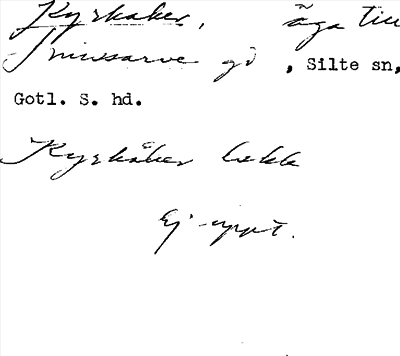 Kyrkåker, äga till
Smissarve gd, Silte sn,
Gotl. S. hd.
Kyrkåker bekk
Ej uppt.